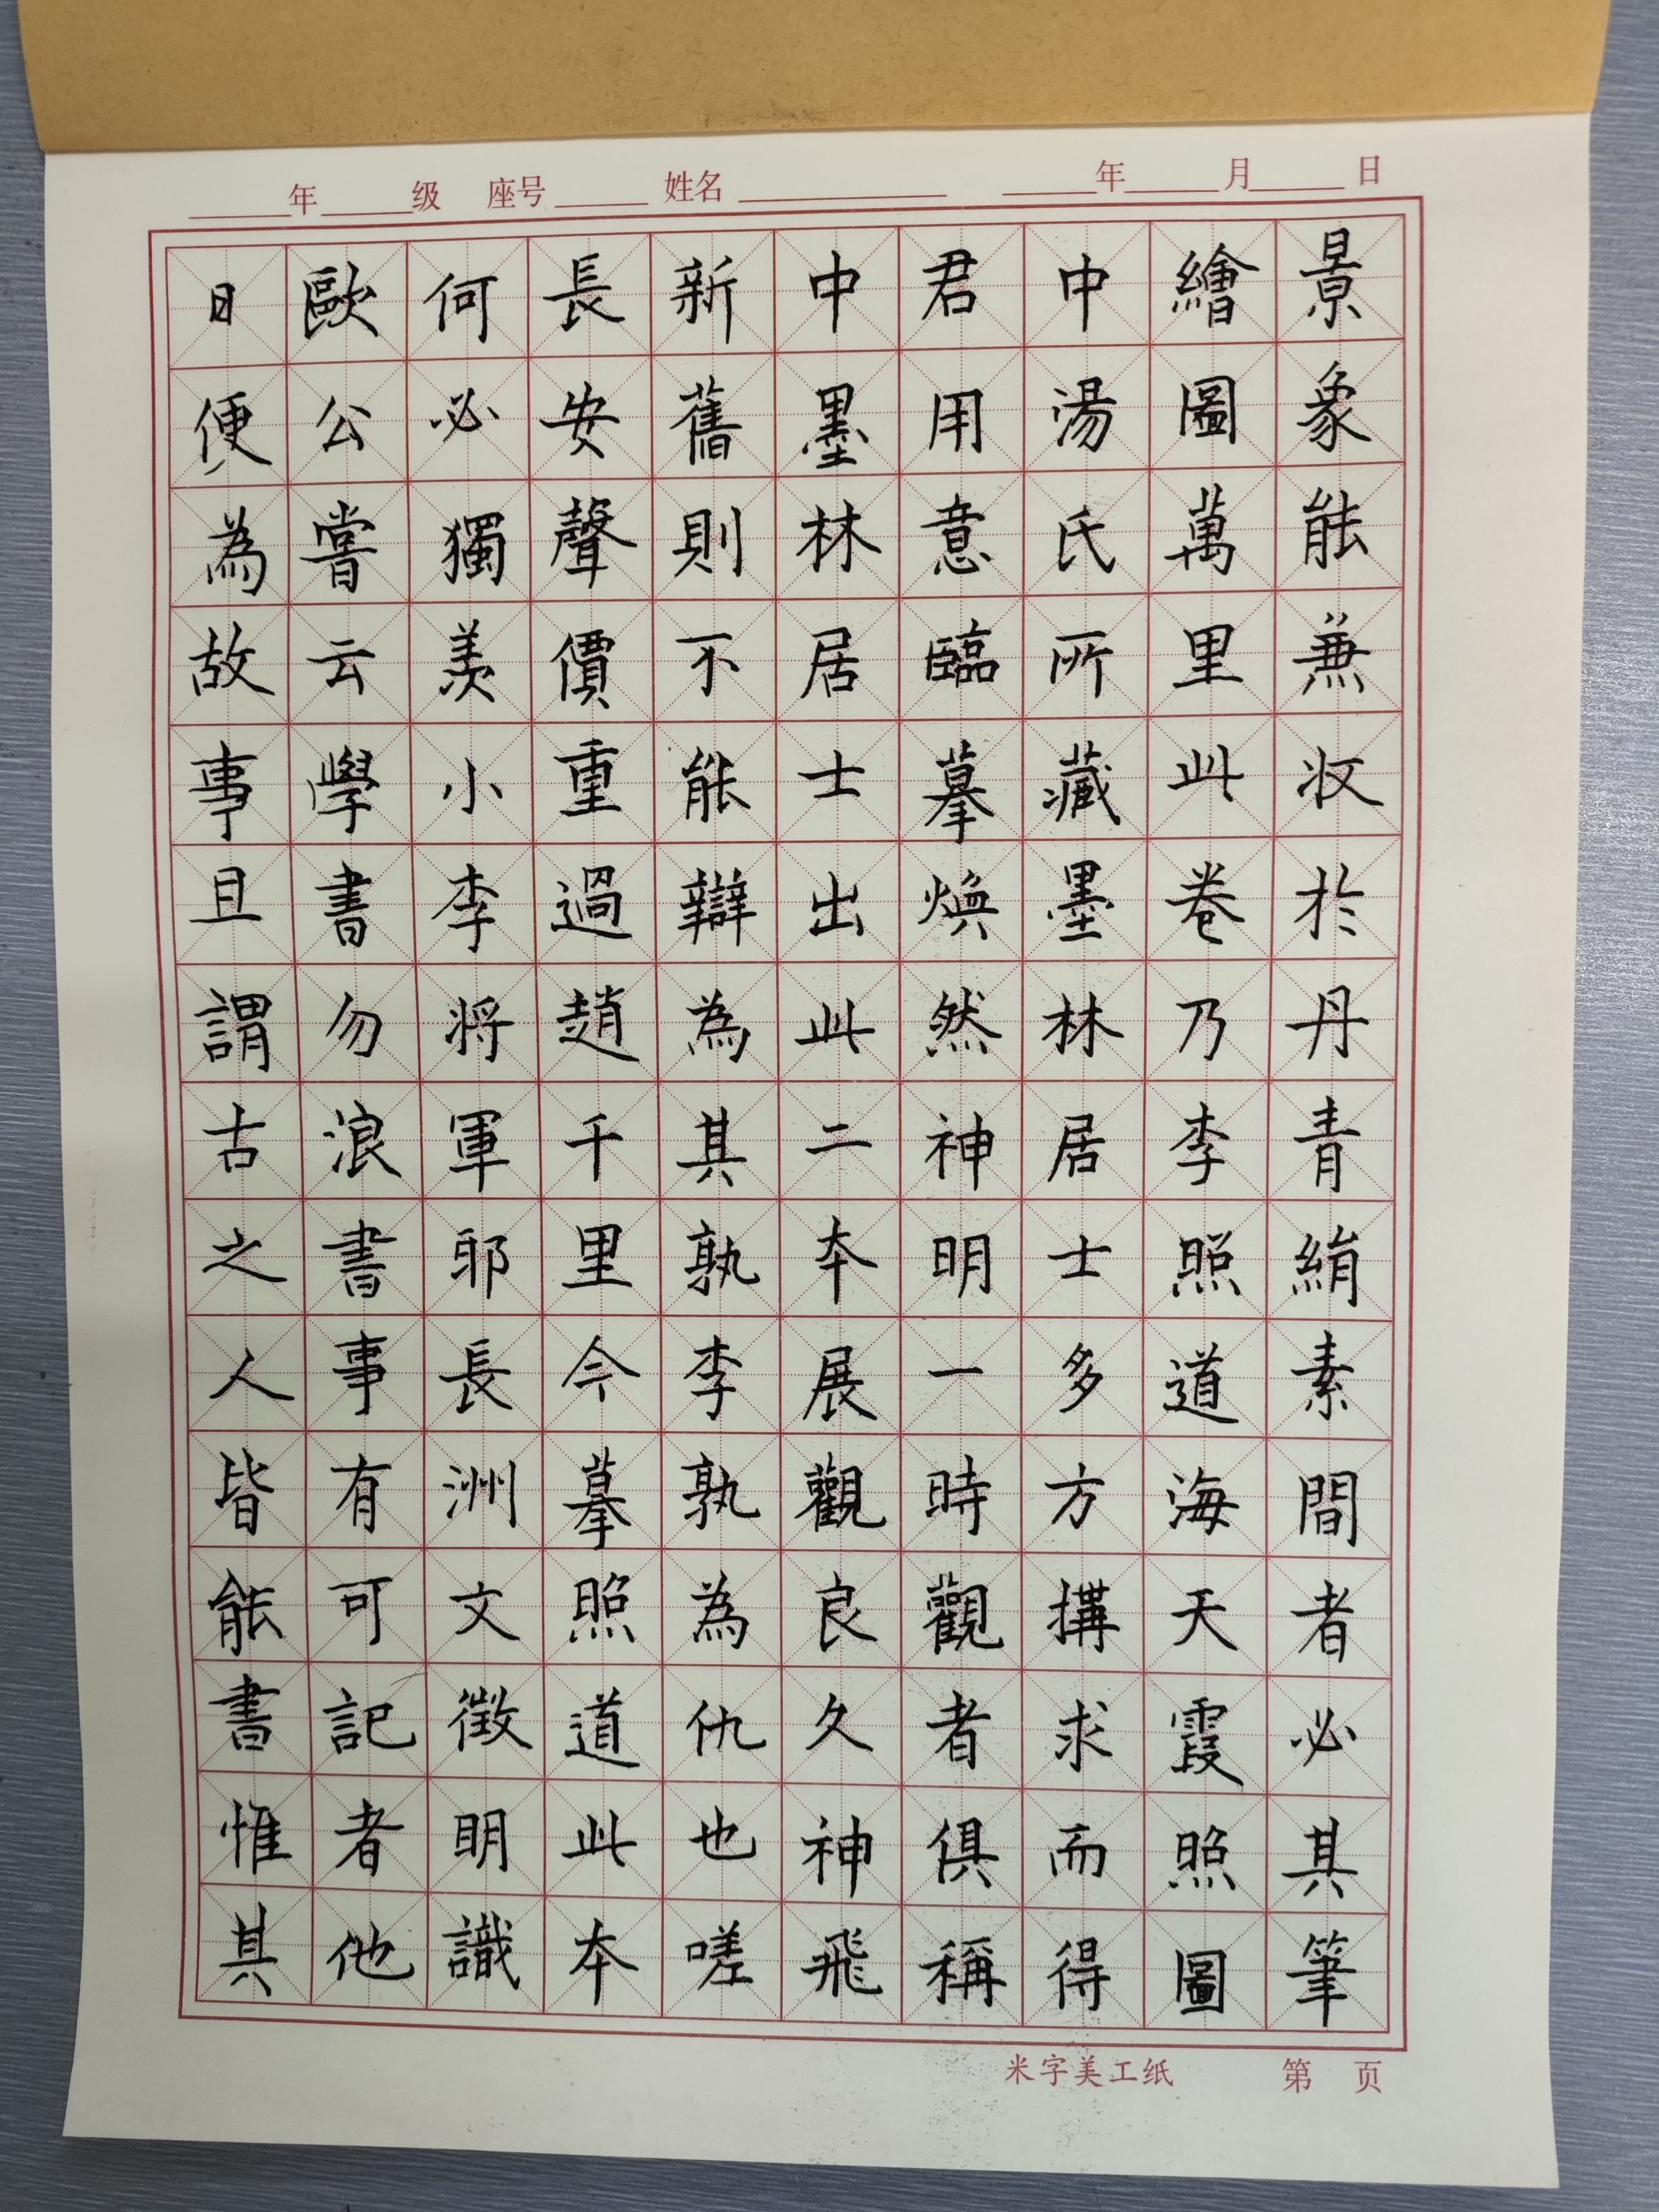 年 级 座号 姓名 年 月 日
景象能兼收於丹青絹素間者必其筆
繪圖萬里此卷乃李照道海天霞照圖
中湯氏所藏墨林居士多方搆求而得
君用意臨摹煥然神明一時觀者俱稱
中墨林居士出此二本展觀良久神飛
新舊則不能辯為其孰李孰為仇也嗟
長安聲價重過趙千里今摹照道此本
何必獨羨小李將軍耶長洲文徵明識
歐公嘗云學書勿浪書事有可記者他
日便為故事且謂古之人皆能書惟其
米字美工纸 第 页